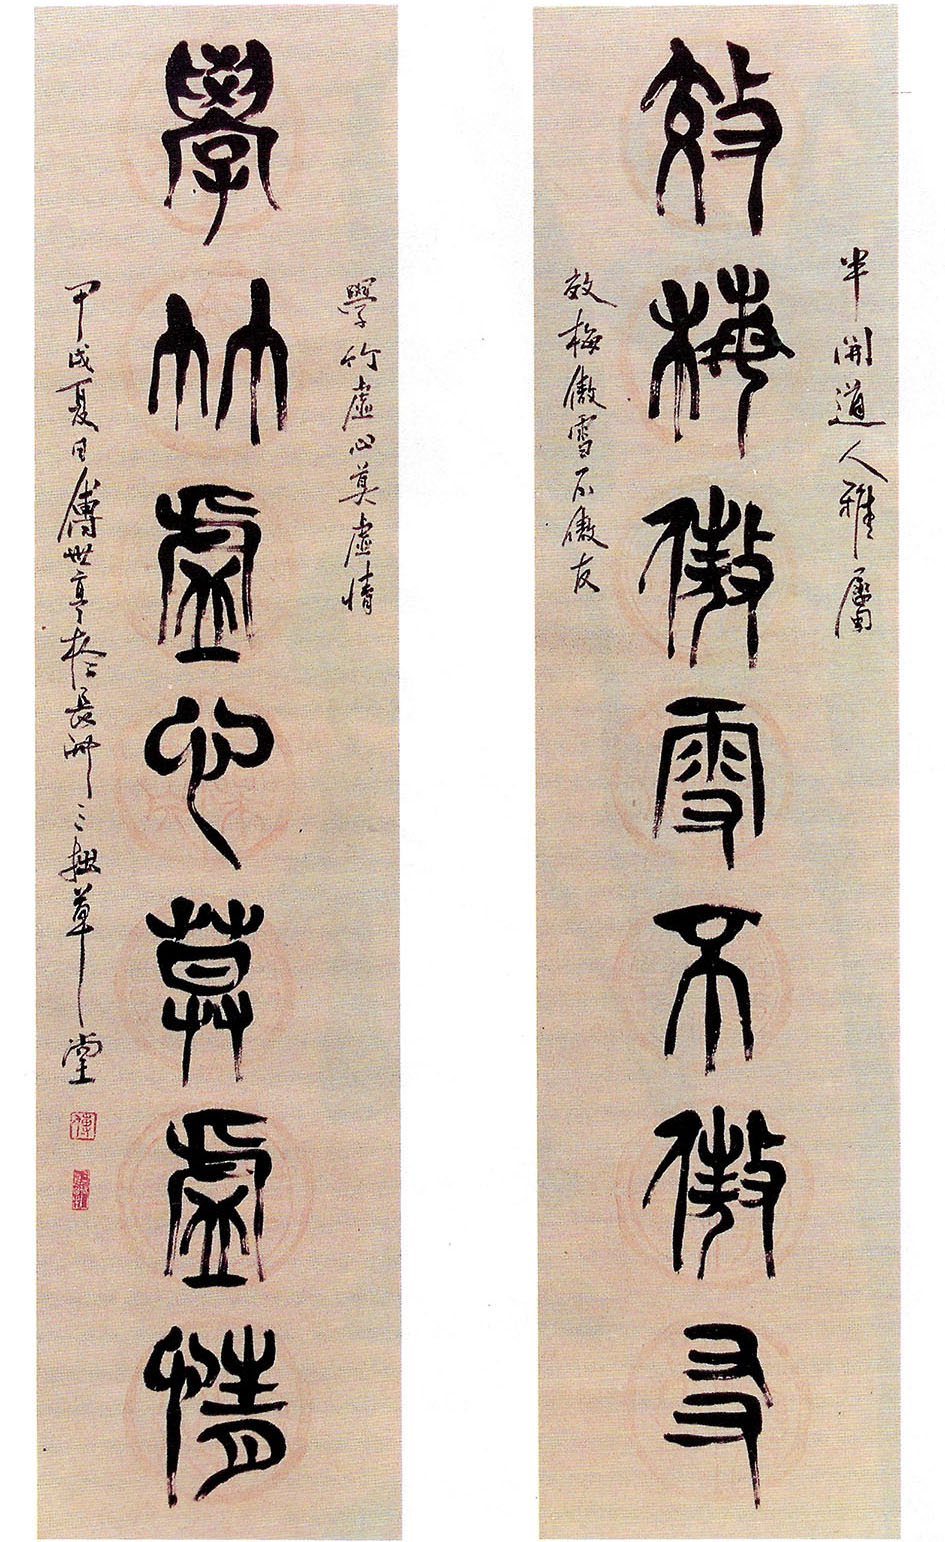 半開道人雅屬
效梅傲雪不傲友
效梅傲雪不傲友
學竹虛心莫虛情
學竹虛心莫虛情
甲戌夏日傅世亭於長洲三拙草堂